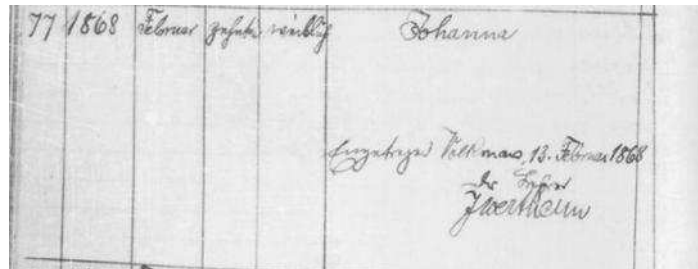 77 1868 Februar zehnte weiblich Johanna
Eingetragen Volkmars, 13. Februar 1868
Der Lehrer